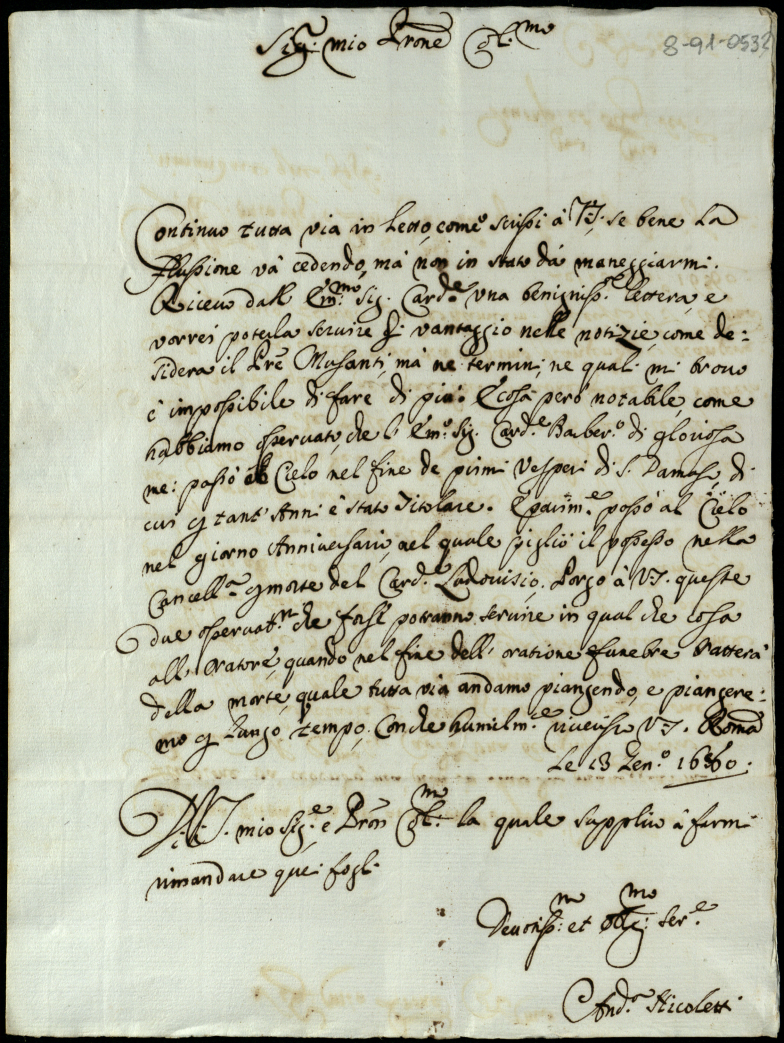 8-91-053
Sig.r mio Prone Col.mo
Continuo tutta via in letto, come scrissi à V.S. se bene la
flussione và cedendo, mà non in stato dà maneggiarmi.
Ricevo dall' Em.mo Sig. Card.e una benigniss.a lettera, e
vorrei poterla servire di vantaggio nelle notizie, come de:
sidera il Pre Musanti, mà ne termini, ne quali mi trovo
è impossibile di fare di più. È cosa però notabile, come
habbiamo osservato, che l' Em.o Sig. Card.e Barber.o di gloriosa
me: passò al Cielo nel fine de primi Vesperi di S. Damaso, di
cui p tant' Anni è stato Titolare. È parim.e passò al Cielo
nel giorno Anniversario, nel quale pigliò il possesso nella
Cancell.a p morte del Card.e Ludovisio. Porgo à V.S. queste
due osservat.ni che forse potranno servire in qualche cosa
all' oratore, quando nel fine dell' oratione funebre tratterà
della morte, quale tutta via andamo piangendo, e piangere:
mo p lungo tempo. Con che humilm.e riverisco V.S. Roma
Le 13 Gen.o 1680.
Di V.S. mio Sig.e e Pron Col.mo la quale supplico à farmi
rimandare quei fogli
Devotiss.mo et Obblig.mo Ser.e
And.a Nicoletti